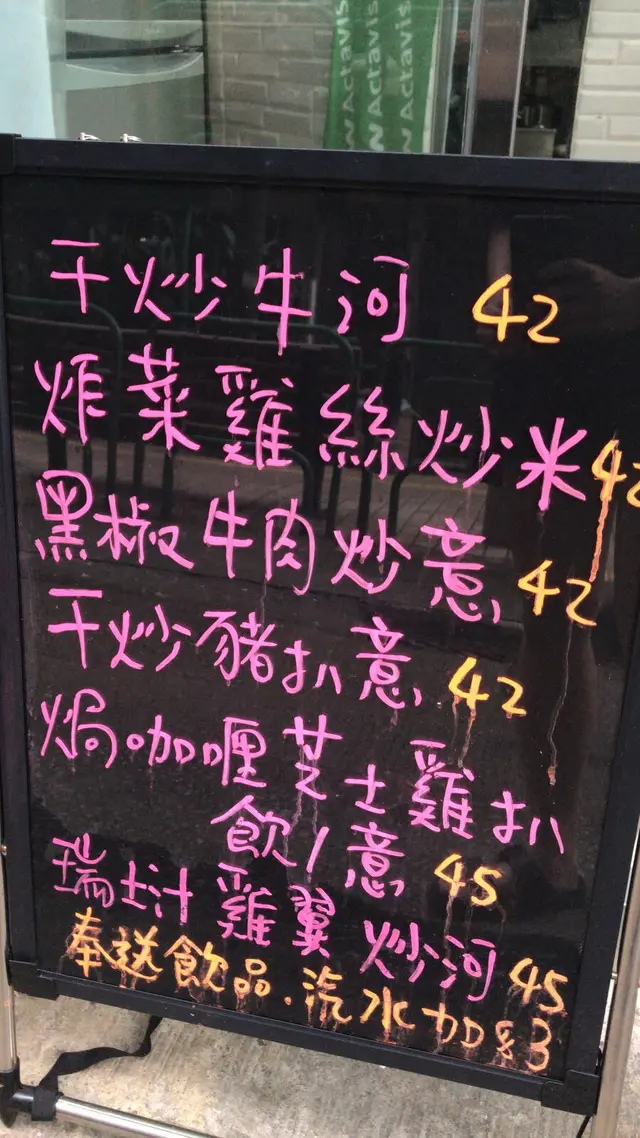 Actavis
Actavis
干炒牛河 42
炸菜雞絲炒米 42
黑椒牛肉炒意 42
干炒豬扒意 42
焗咖喱芝士雞扒
飲/意 45
瑞士汁雞翼炒河 45
奉送飲品.汽水加$3